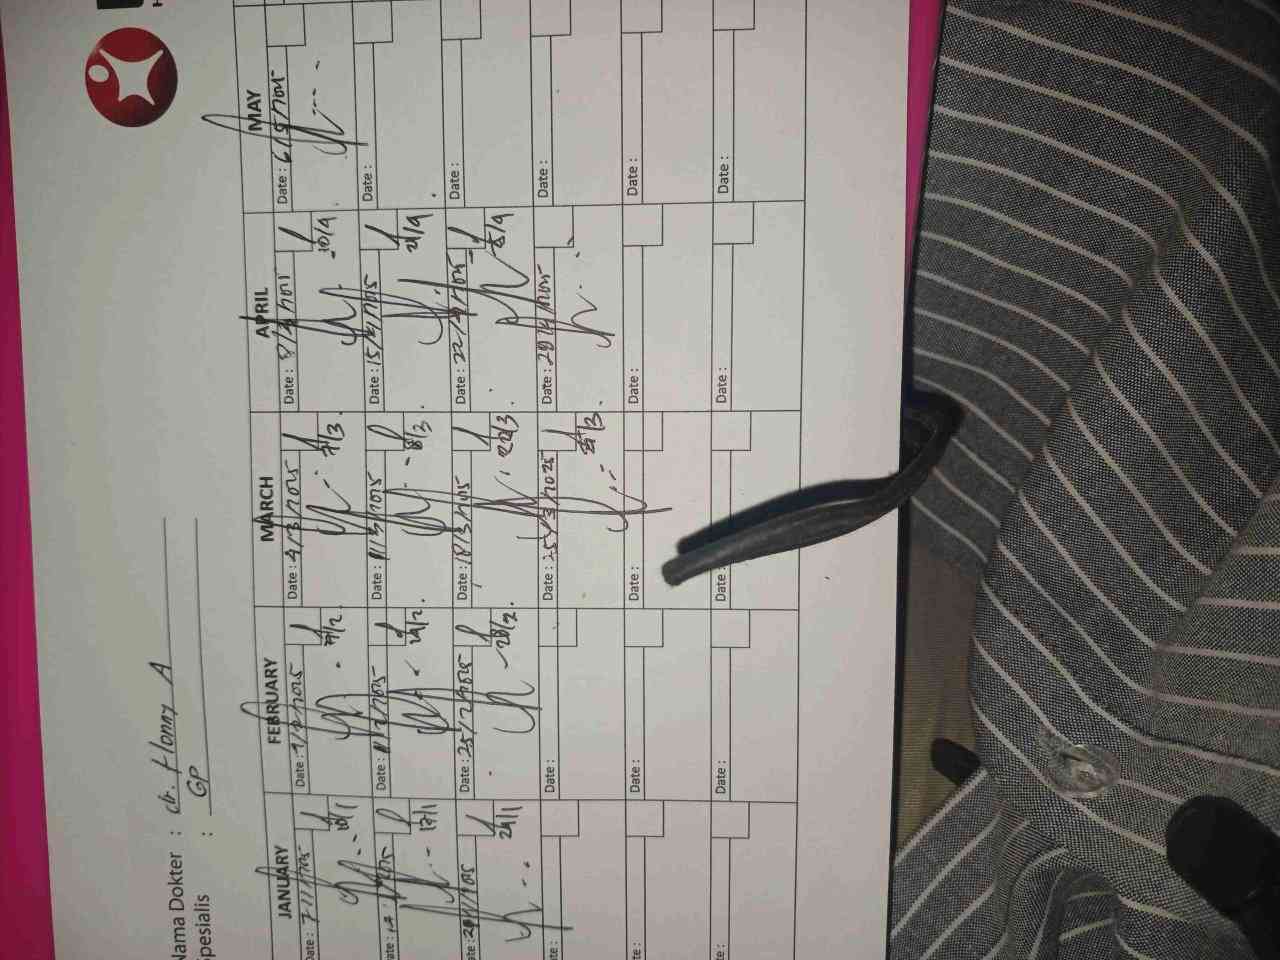 Nama Dokter : dr. Honny A
Spesialis : GP
JANUARY FEBRUARY MARCH APRIL MAY
Date : 7/1/2025 Date : 4/2/2025 Date : 4/3/2025 Date : 8/4/2025 Date : 6/5/2025
10/1 7/2 7/3 10/4
Date : Date : 11/2/2025 Date : 11/3/2025 Date : 15/4/2025 Date :
17/1 14/2 21/4
Date : Date : 25/2/2025 Date : 18/3/2025 Date : 22/4/2025 Date :
24/1 28/2 22/3
Date : Date : Date : 25/3/2025 Date : 29/4/2025 Date :
27/3
Date : Date : Date : Date : Date :
Date : Date : Date : Date : Date :